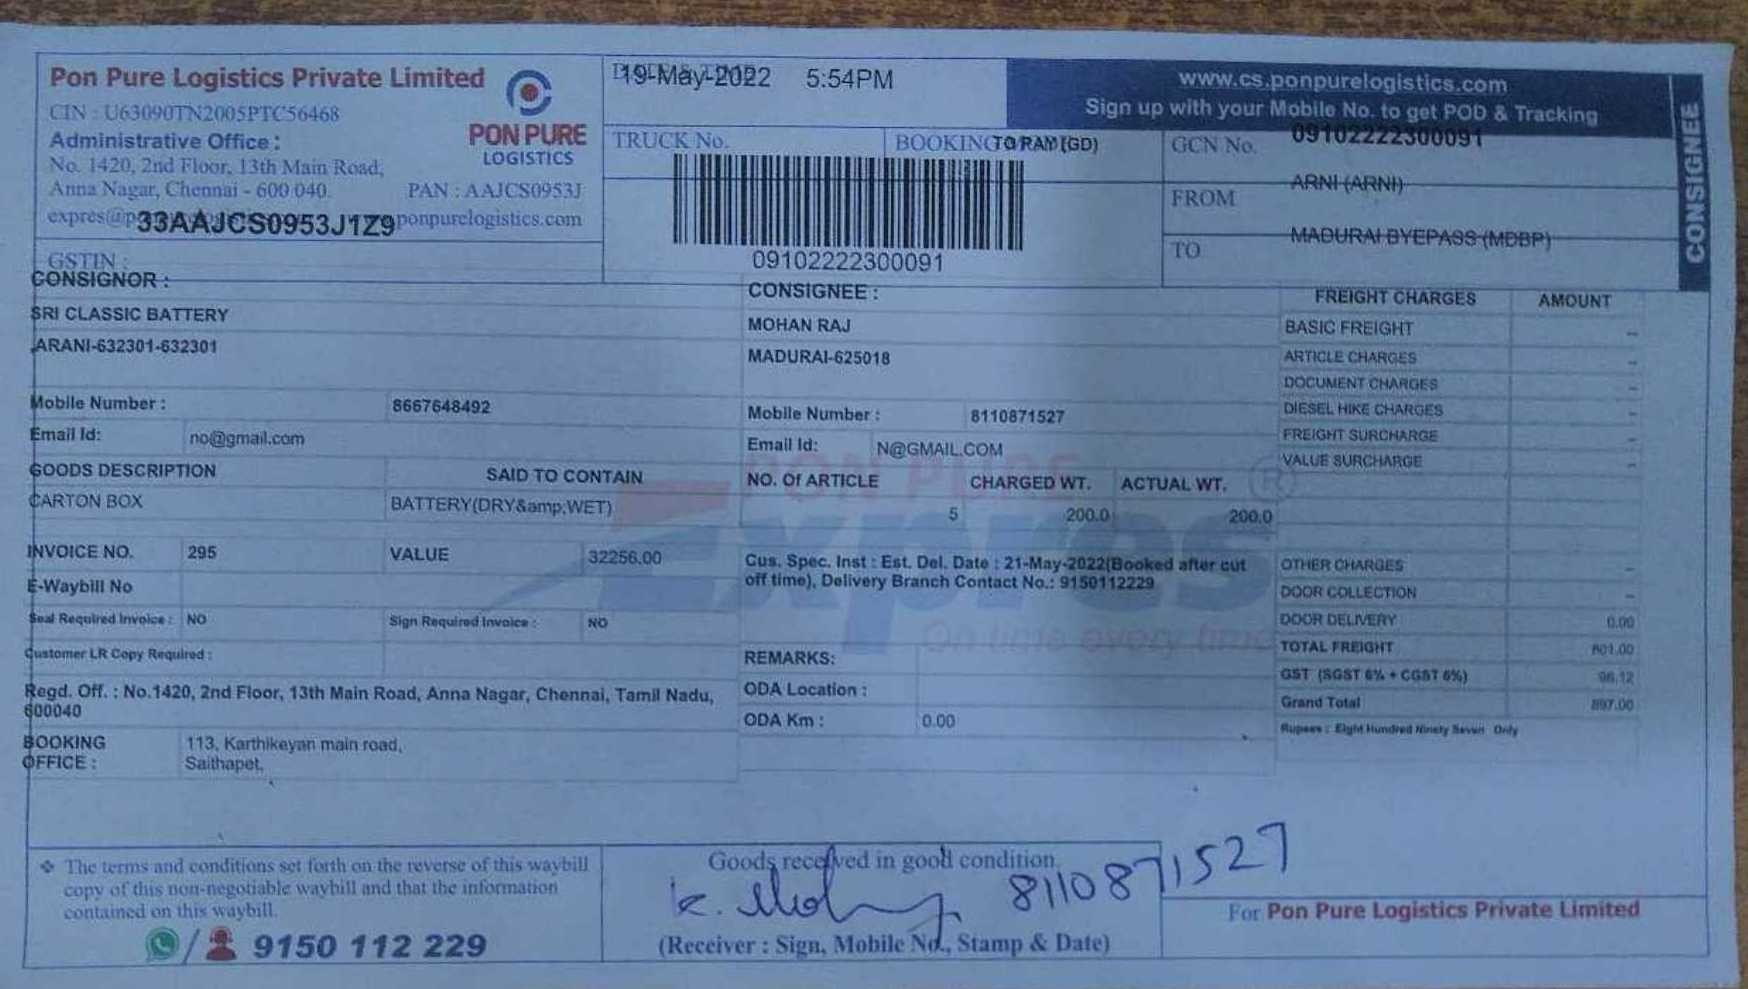 Pon Pure Logistics Private Limited
CIN : U63090TN2005PTC56468
Administrative Office :
No. 1420, 2nd Floor, 13th Main Road,
Anna Nagar, Chennai - 600 040.
PAN : AAJCS0953J
33AAJCS0953J1Z9
ponpurelogistics.com
GSTIN :
PON PURE
LOGISTICS
19-May-2022 5:54PM
www.cs.ponpurelogistics.com
Sign up with your Mobile No. to get POD & Tracking
CONSIGNEE
TRUCK No.
BOOKING TO RAM (GD)
GCN No. 09102222300091
FROM ARNI (ARNI)
TO MADURAI BYEPASS (MDBP)
09102222300091
CONSIGNOR :
SRI CLASSIC BATTERY
ARANI-632301-632301
Mobile Number : 8667648492
Email Id: no@gmail.com
GOODS DESCRIPTION SAID TO CONTAIN
CARTON BOX BATTERY(DRY&amp;WET)
INVOICE NO. 295 VALUE 32256.00
E-Waybill No
Seal Required Invoice : NO Sign Required Invoice : NO
Customer LR Copy Required :
Regd. Off. : No.1420, 2nd Floor, 13th Main Road, Anna Nagar, Chennai, Tamil Nadu,
600040
BOOKING 113, Karthikeyan main road,
OFFICE : Saithapet,
CONSIGNEE :
MOHAN RAJ
MADURAI-625018
Mobile Number : 8110871527
Email Id: N@GMAIL.COM
NO. Of ARTICLE CHARGED WT. ACTUAL WT.
5 200.0 200.0
Cus. Spec. Inst : Est. Del. Date : 21-May-2022(Booked after cut
off time), Delivery Branch Contact No.: 9150112229
REMARKS:
ODA Location :
ODA Km : 0.00
PON PURE
Expres
On time every time
®
FREIGHT CHARGES AMOUNT
BASIC FREIGHT --
ARTICLE CHARGES --
DOCUMENT CHARGES --
DIESEL HIKE CHARGES --
FREIGHT SURCHARGE --
VALUE SURCHARGE --
OTHER CHARGES --
DOOR COLLECTION --
DOOR DELIVERY 0.00
TOTAL FREIGHT 801.00
GST (SGST 6% + CGST 6%) 96.12
Grand Total 897.00
Rupees : Eight Hundred Ninety Seven Only
❖ The terms and conditions set forth on the reverse of this waybill
copy of this non-negotiable waybill and that the information
contained on this waybill.
/ 9150 112 229
Goods received in good condition.
K. 8110871527
(Receiver : Sign, Mobile No., Stamp & Date)
For Pon Pure Logistics Private Limited